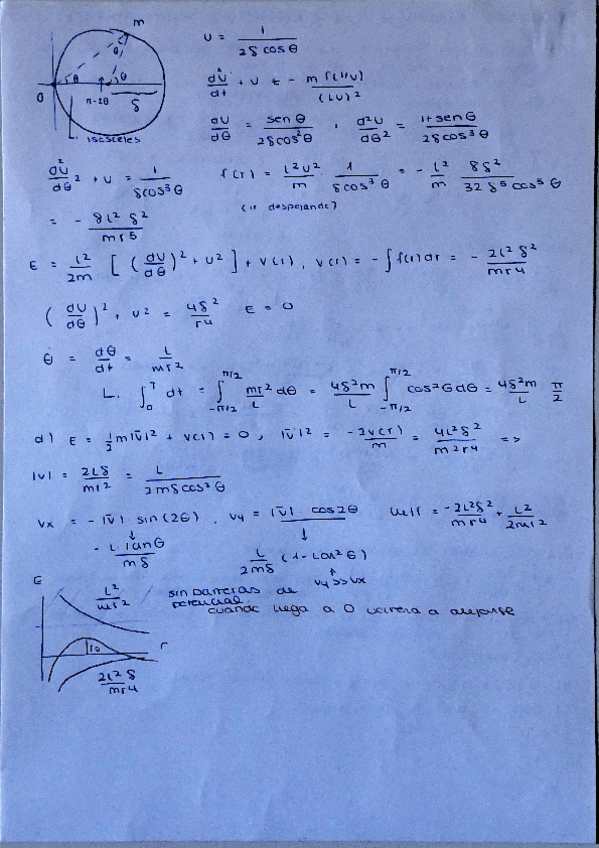 m
θ
θ
2θ
O
π-2θ
δ
isosceles
u = 1 / 2δ cos θ
d²u/dt + u = - m f(1/u) / (Lu)²
du/dθ = sen θ / 2δ cos²θ , d²u/dθ² = 1+sen θ / 2δ cos³θ
d²u/dθ² + u = 1 / δcos³θ    f(r) = L²u²/m · 1/δcos³θ = - L²/m 8δ² / 32 δ⁵ cos⁵ θ
(ir despejando)
= - 8L² δ² / mr⁵
E = L²/2m [ (du/dθ)² + u² ] + V(r) , V(r) = -∫ f(r) dr = - 2L² δ² / mr⁴
(du/dθ)² + u² = 4δ²/r⁴    E = 0
θ̇ = dθ/dt = L/mr²
L. ∫₀ᵀ dt = ∫_{-π/2}^{π/2} mr²/L dθ = 4δ²m/L ∫_{-π/2}^{π/2} cos²θ dθ = 4δ²m/L π/2
d) E = ½ m|v̄|² + V(r) = 0 , |v̄|² = -2V(r)/m = 4L²δ²/m²r⁴ =>
|v| = 2Lδ/mr² = L / 2mδcos²θ
Vx = -|v̄| sin(2θ) , Vy = |v̄| cos2θ    Ueff = -2L²δ²/mr⁴ + L²/2mr²
↓ - L·tanθ/mδ    ↓ L/2mδ (1-tan²θ)
↑ Vy>>Vx
E
L²/mr²    sin barreras de
potencial
cuando llega a 0 volvera a alejarse
r₀
r
2L²δ/mr⁴